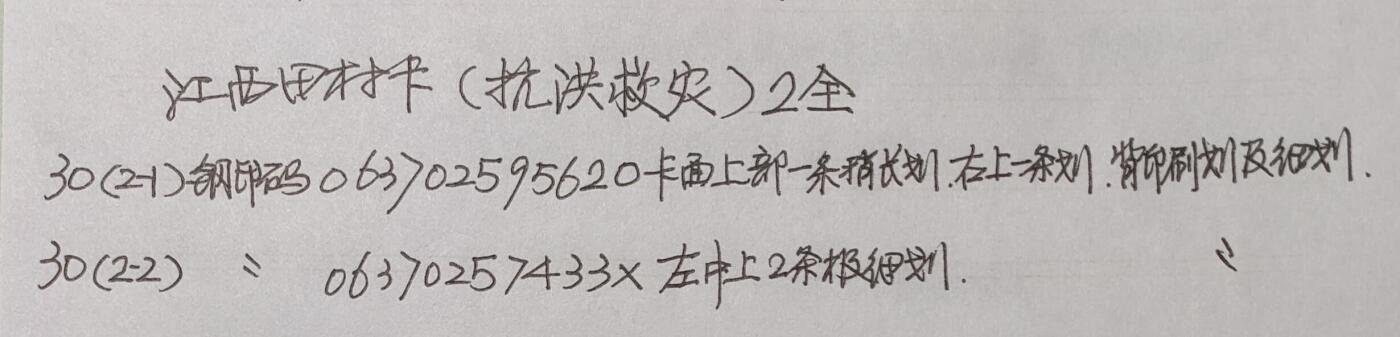 江西田村卡（抗洪救灾）2全
30(2-1)钢印码063702595620卡面上部一条稍长划.右上一条划.背印刷划及细划.
30(2-2) 〃 06370257433X 左中上2条极细划. 〃